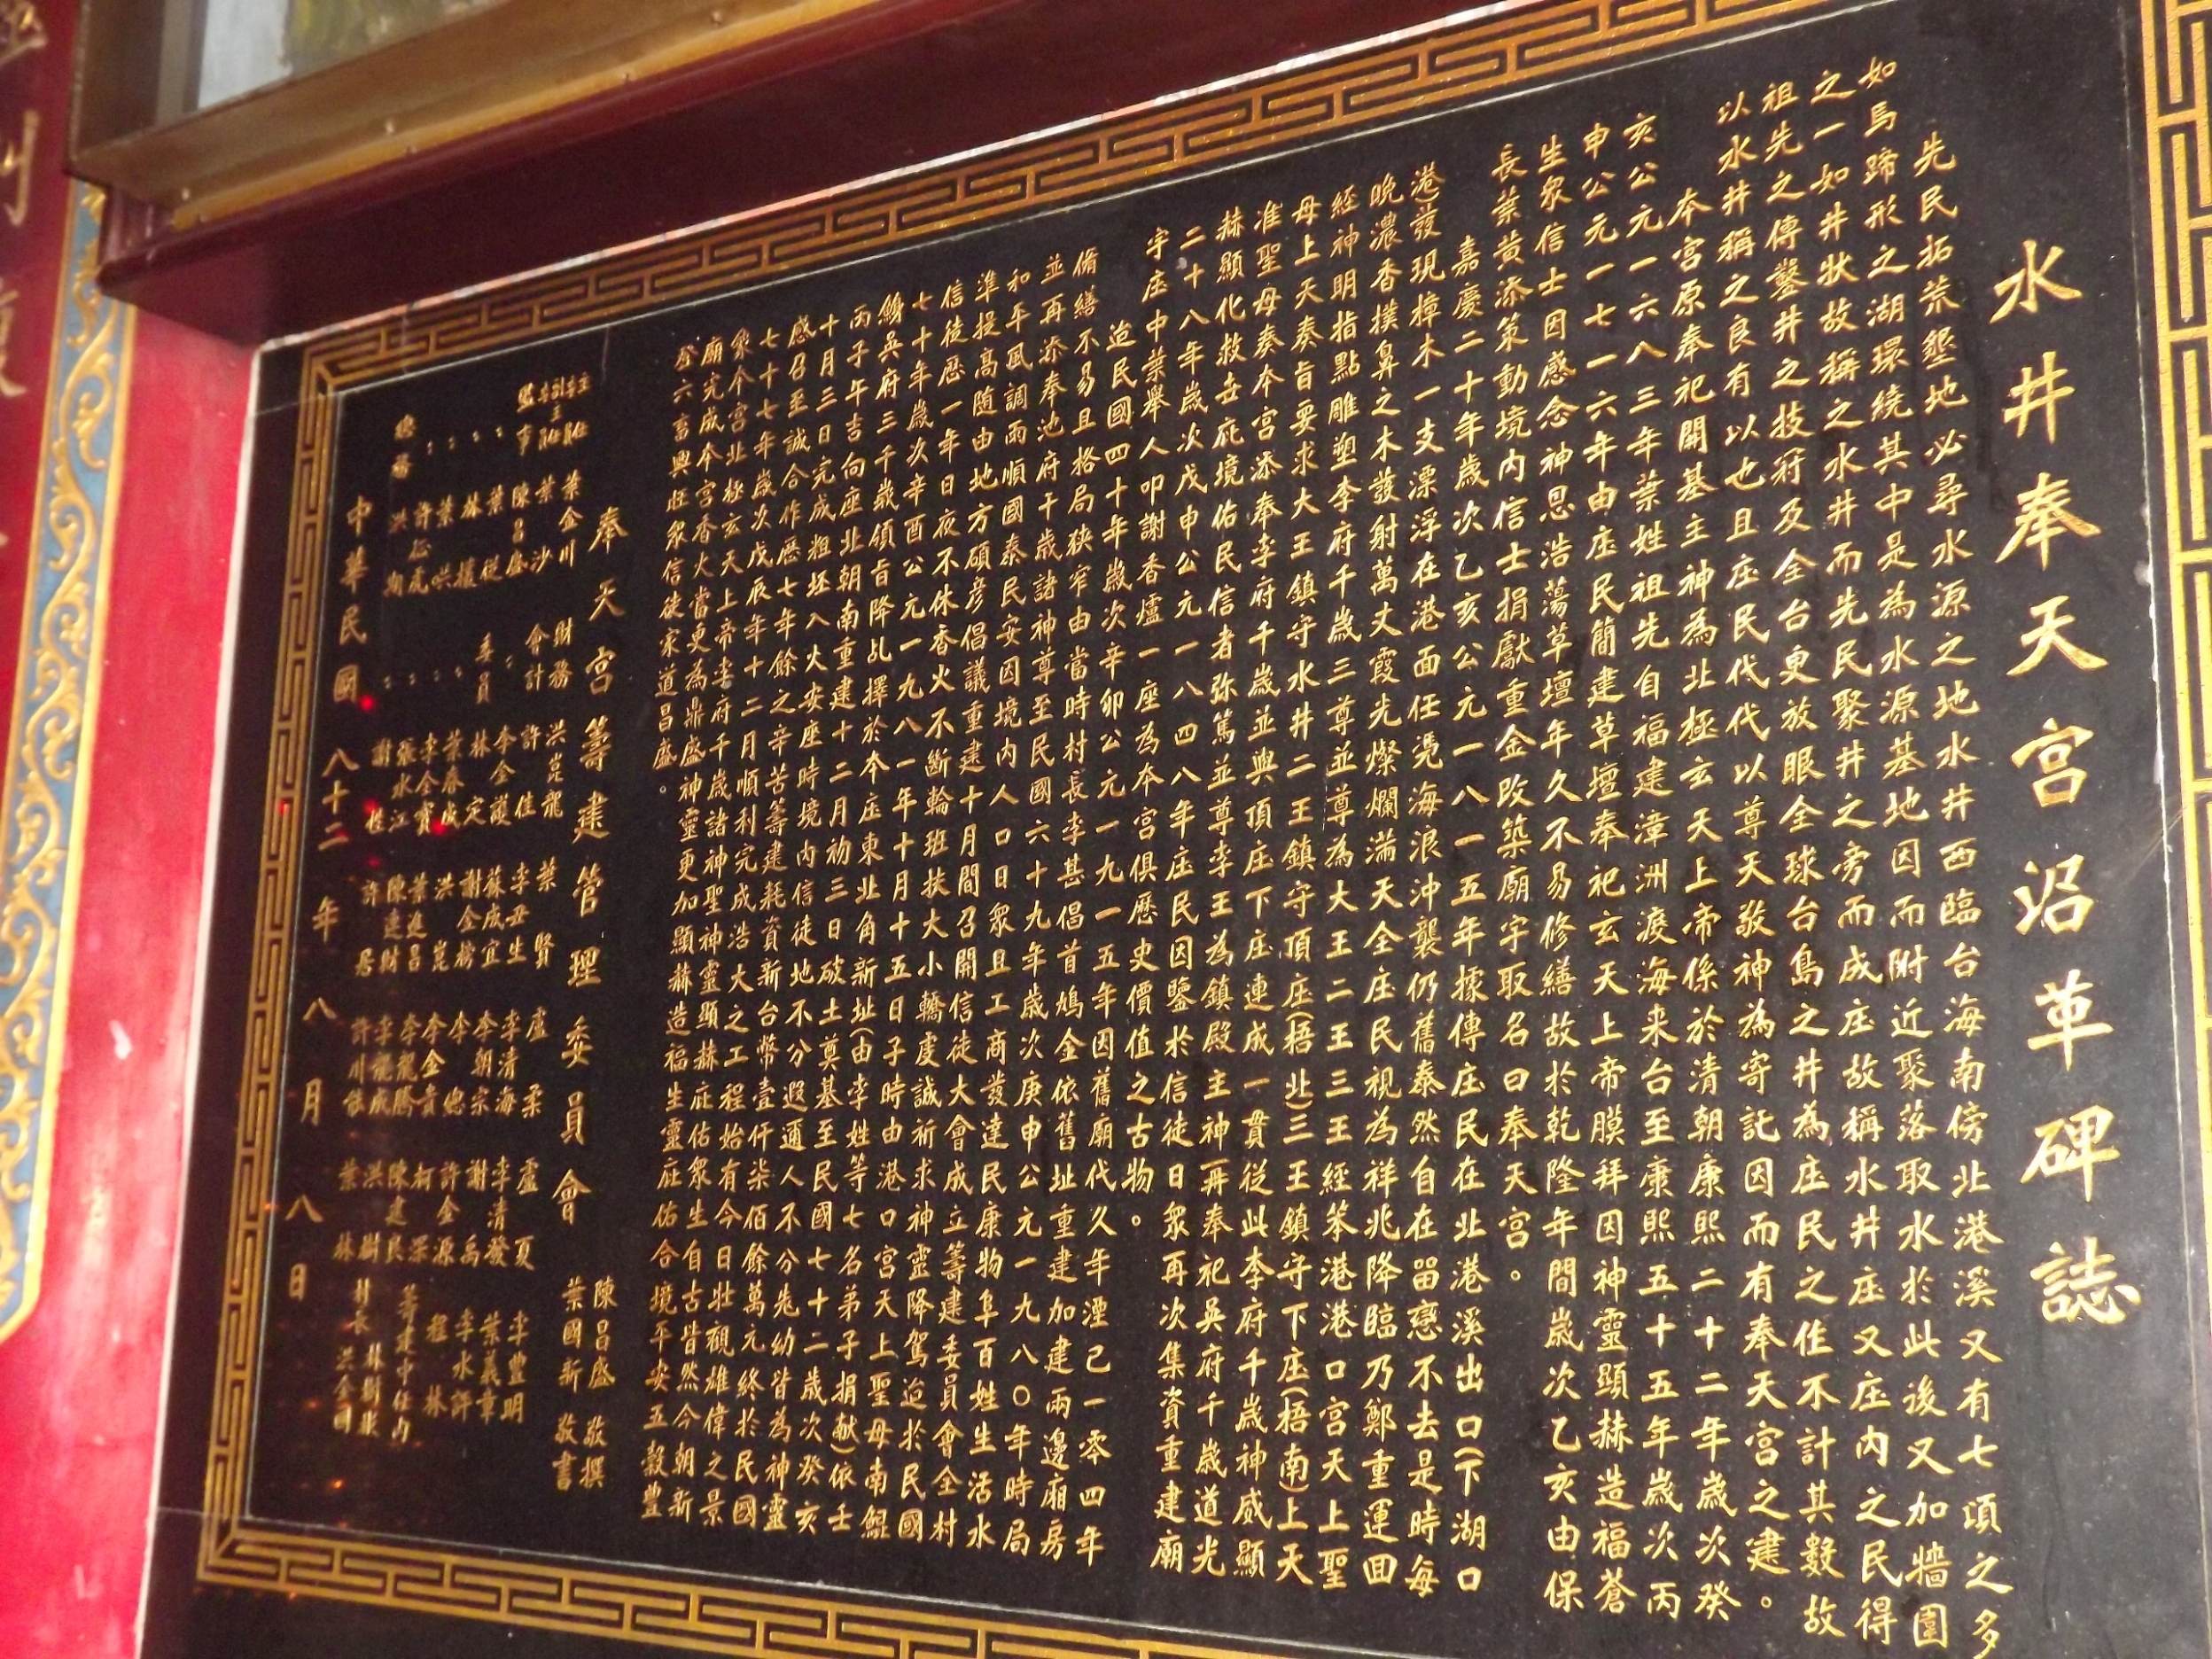 水井奉天宮沿革碑誌
先民拓荒墾地必尋水源之地水井西臨台海南傍北港溪又有七項之多
如馬蹄形之湖環繞其中是為水源基地因而附近聚落取水於此後又加牆圍
之一如井狀故稱之水井而先民聚井之旁而成庄故稱水井庄又庄內之民得
祖先之傳鑿井之技冠及全台更放眼全球台島之井為庄民之作不計其數故
以水井稱之良有以也且庄民代代以尊天敬神為寄託因而有奉天宮之建。
本宮原奉祀開基主神為北極玄天上帝係於清朝康熙二十二年歲次癸
亥公元一六八三年葉姓祖先自福建漳洲渡海來台至康熙五十五年歲次丙
申公元一七一六年由庄民簡建草壇奉祀玄天上帝膜拜因神靈顯赫造福蒼
生眾信士因感念神恩浩蕩草壇年久不易修繕故於乾隆年間歲次乙亥由保
長葉黃添策動境內信士捐獻重金改築廟宇取名曰奉天宮。
嘉慶二十年歲次乙亥公元一八一五年據傳庄民在北港溪出口(下湖口
港發現樟木一支漂浮在港面任憑海浪沖襲仍舊泰然自在留戀不去是時每
晚濃香撲鼻之木發射萬丈霞光燦爛滿天全庄民視為祥兆降臨乃鄭重運回
經神明指點雕塑李府千歲三尊並尊為大王二王三王經笨港港口宮天上聖
母上天奏旨要求大王鎮守水井二王鎮守頂庄(梧北)三王鎮守下庄(梧南)上天
准聖母奏本宮添奉李府千歲並與頂庄下庄連成一貫從此李府千歲神威顯
赫顯化救世庇境佑民信者弥篤並尊李王為鎮殿主神再奉祀吳府千歲道光
二十八年歲次戊申公元一八四八年庄民因鑒於信徒日眾再次集資重建廟
宇庄中葉舉人叩謝香爐一座為本宮俱歷史價值之古物。
迨民國四十年歲次辛卯公元一九一五年因舊廟代久年湮已一零四年
脩繕不易且格局狹窄由當時村長李甚倡首鳩金依舊址重建加建兩邊廂房
並再添奉池府千歲諸神尊至民國六十九年歲次庚申公元一九八〇年時局
和年風調雨順國泰民安因境內人口日眾且工商發達民康物阜百姓生活水
準提高隨由地方碩彥倡議重建十月間召開信徒大會成立籌建委員會全村
信徒歷一年日夜不休香火不斷輪班扶大小轎虔誠祈求神靈降駕迨於民國
七十年歲次辛酉公元一九八一年十月十五日子時由港口宮天上聖母南鯤
鯓吳府三千歲領旨降乩擇於本庄東北角新址(由李姓等七名弟子捐献)依壬
丙子年吉向座北朝南重建十二月初三日破土奠基至民國七十二歲次癸亥
十月三日完成粗坯入火安座時境內信徒地不分遐邇人不分先幼皆為神靈
感召至誠合作歷七年餘之辛苦籌建耗資新台幣壹仟柒佰餘萬元終於民國
七十七年歲次戊辰年十二月順利完成浩大之工程始有今日壯觀雄偉之景
象本宮北極玄天上帝李府千歲諸神聖神靈顯赫庇佑眾生自古皆然今朝新
廟完成本宮香火當更為鼎盛神靈更加顯赫造福生靈庇佑合境平安五穀豊
登六畜興旺眾信徒家道昌盛。
陳昌盛 敬撰
奉天宮籌建管理委員會 葉國新 敬書
主任 葉金川 財務 洪崑龍 葉賢 盧柔 盧夏 李豊明
副主任 葉沙 會計 許佳 李丑生 李清海 李清發 葉義章
監事 陳昌盛 李金護 蘇成宜 李朝宗 謝禹 李水許
葉從 委員 林定 謝金榜 李總 許金源 程林
林 葉春成 洪崑 李金貴 柯 籌建中任內
葉洪 李金寶 葉進昌 李龍騰 陳建良 村長 林樹
許 張水江 陳進財 李龍成 洪樹 洪金
總務 洪 謝 許居 許川 葉林
中華民國八十二年八月八日